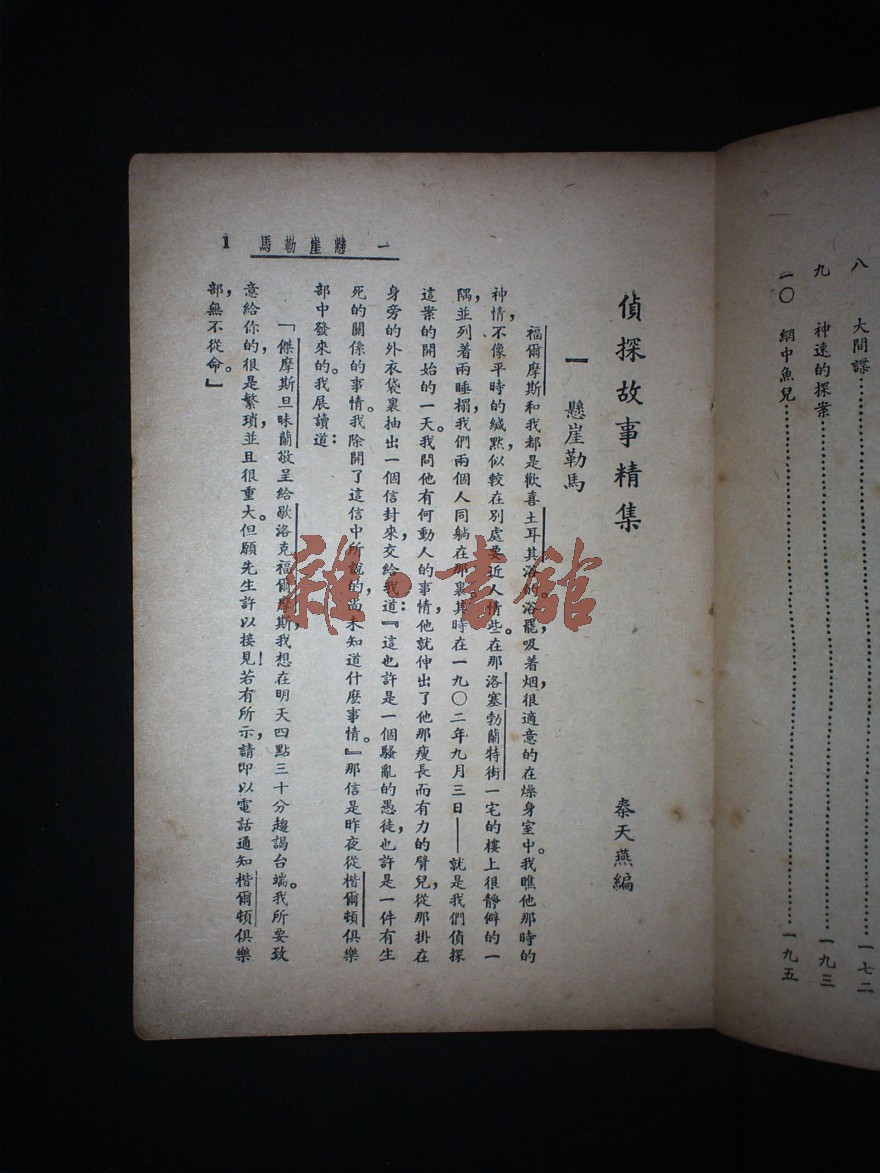 八　大間諜……………………一七二
九　神速的探案……………………一九三
一〇　網中魚兒……………………一九五
一　懸崖勒馬　1
偵探故事精集　秦天燕編
一　懸崖勒馬
福爾摩斯和我都是歡喜土耳其浴的。浴罷，吸着烟，很適意的在燥身室中。我瞧他那時的
神情，不像平時的緘默，似較在別處要近人情些。在那洛塞勃蘭特街一宅的樓上很靜僻的一
隅，並列着兩睡榻，我們兩個人同躺在那裏。其時在一九〇二年九月三日——就是我們偵探
這案的開始的一天。我問他有何動人的事情，他就伸出了他那瘦長而有力的臂兒，從那掛在
身旁的外衣袋裏抽出一個信封來，交給我道：『這也許是一個騷亂的愚徒，也許是一件有生
死的關係的事情。我除開了這信中所說的，尚未知道什麼事情。』那信是昨夜從楷爾頓俱樂
部中發來的。我展讀道：
「傑摩斯旦昧蘭敬呈給歇洛克福爾摩斯，我想在明天四點三十分趨謁台端。我所要致
意給你的，很是繁瑣，並且很重大。但願先生許以接見！若有所示，請即以電話通知楷爾頓俱樂
部，無不從命。』
雜·書館